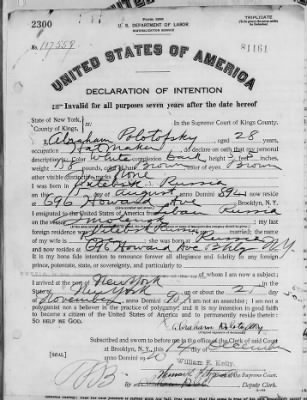 2300
Form 2203
TRIPLICATE
U. S. DEPARTMENT OF LABOR
NATURALIZATION SERVICE
No. 117559
81161
UNITED STATES OF AMERICA
DECLARATION OF INTENTION
Invalid for all purposes seven years after the date hereof
State of New York,
County of Kings, ss:
In the Supreme Court of Kings County.
I, Abraham Polotofsky, aged 28 years,
occupation Hat Maker, do declare on oath that my personal
description is: Color White, complexion Dark, height 5 feet inches,
weight pounds, color of hair Brown, color of eyes Brown
other visible distinctive marks None
I was born in Russia
on the day of August, anno Domini 1892; I now reside
at 696 Howard Ave, Brooklyn, N. Y.
I emigrated to the United States of America from Libau Russia
on the vessel; my last
foreign residence was Russia; I am married; the name
of my wife is; she was born in Russia
and now resides at 696 Howard Ave Bklyn N.Y.
It is my bona fide intention to renounce forever all allegiance and fidelity to any foreign
prince, potentate, state, or sovereignty, and particularly to
of whom I am now a subject;
I arrived at the port of New York, in the
State of New York, on or about the 21 day
of November, anno Domini; I am not an anarchist; I am not a
polygamist nor a believer in the practice of polygamy; and it is my intention in good faith
to become a citizen of the United States of America and to permanently reside therein:
SO HELP ME GOD.
Abraham Polotofsky
Subscribed and sworn to before me in the office of the Clerk of said Court
at Brooklyn, N. Y., this 4 day of December
[SEAL]
anno Domini 1920
William F. Kelly,
Clerk of the Supreme Court.
By, Deputy Clerk.